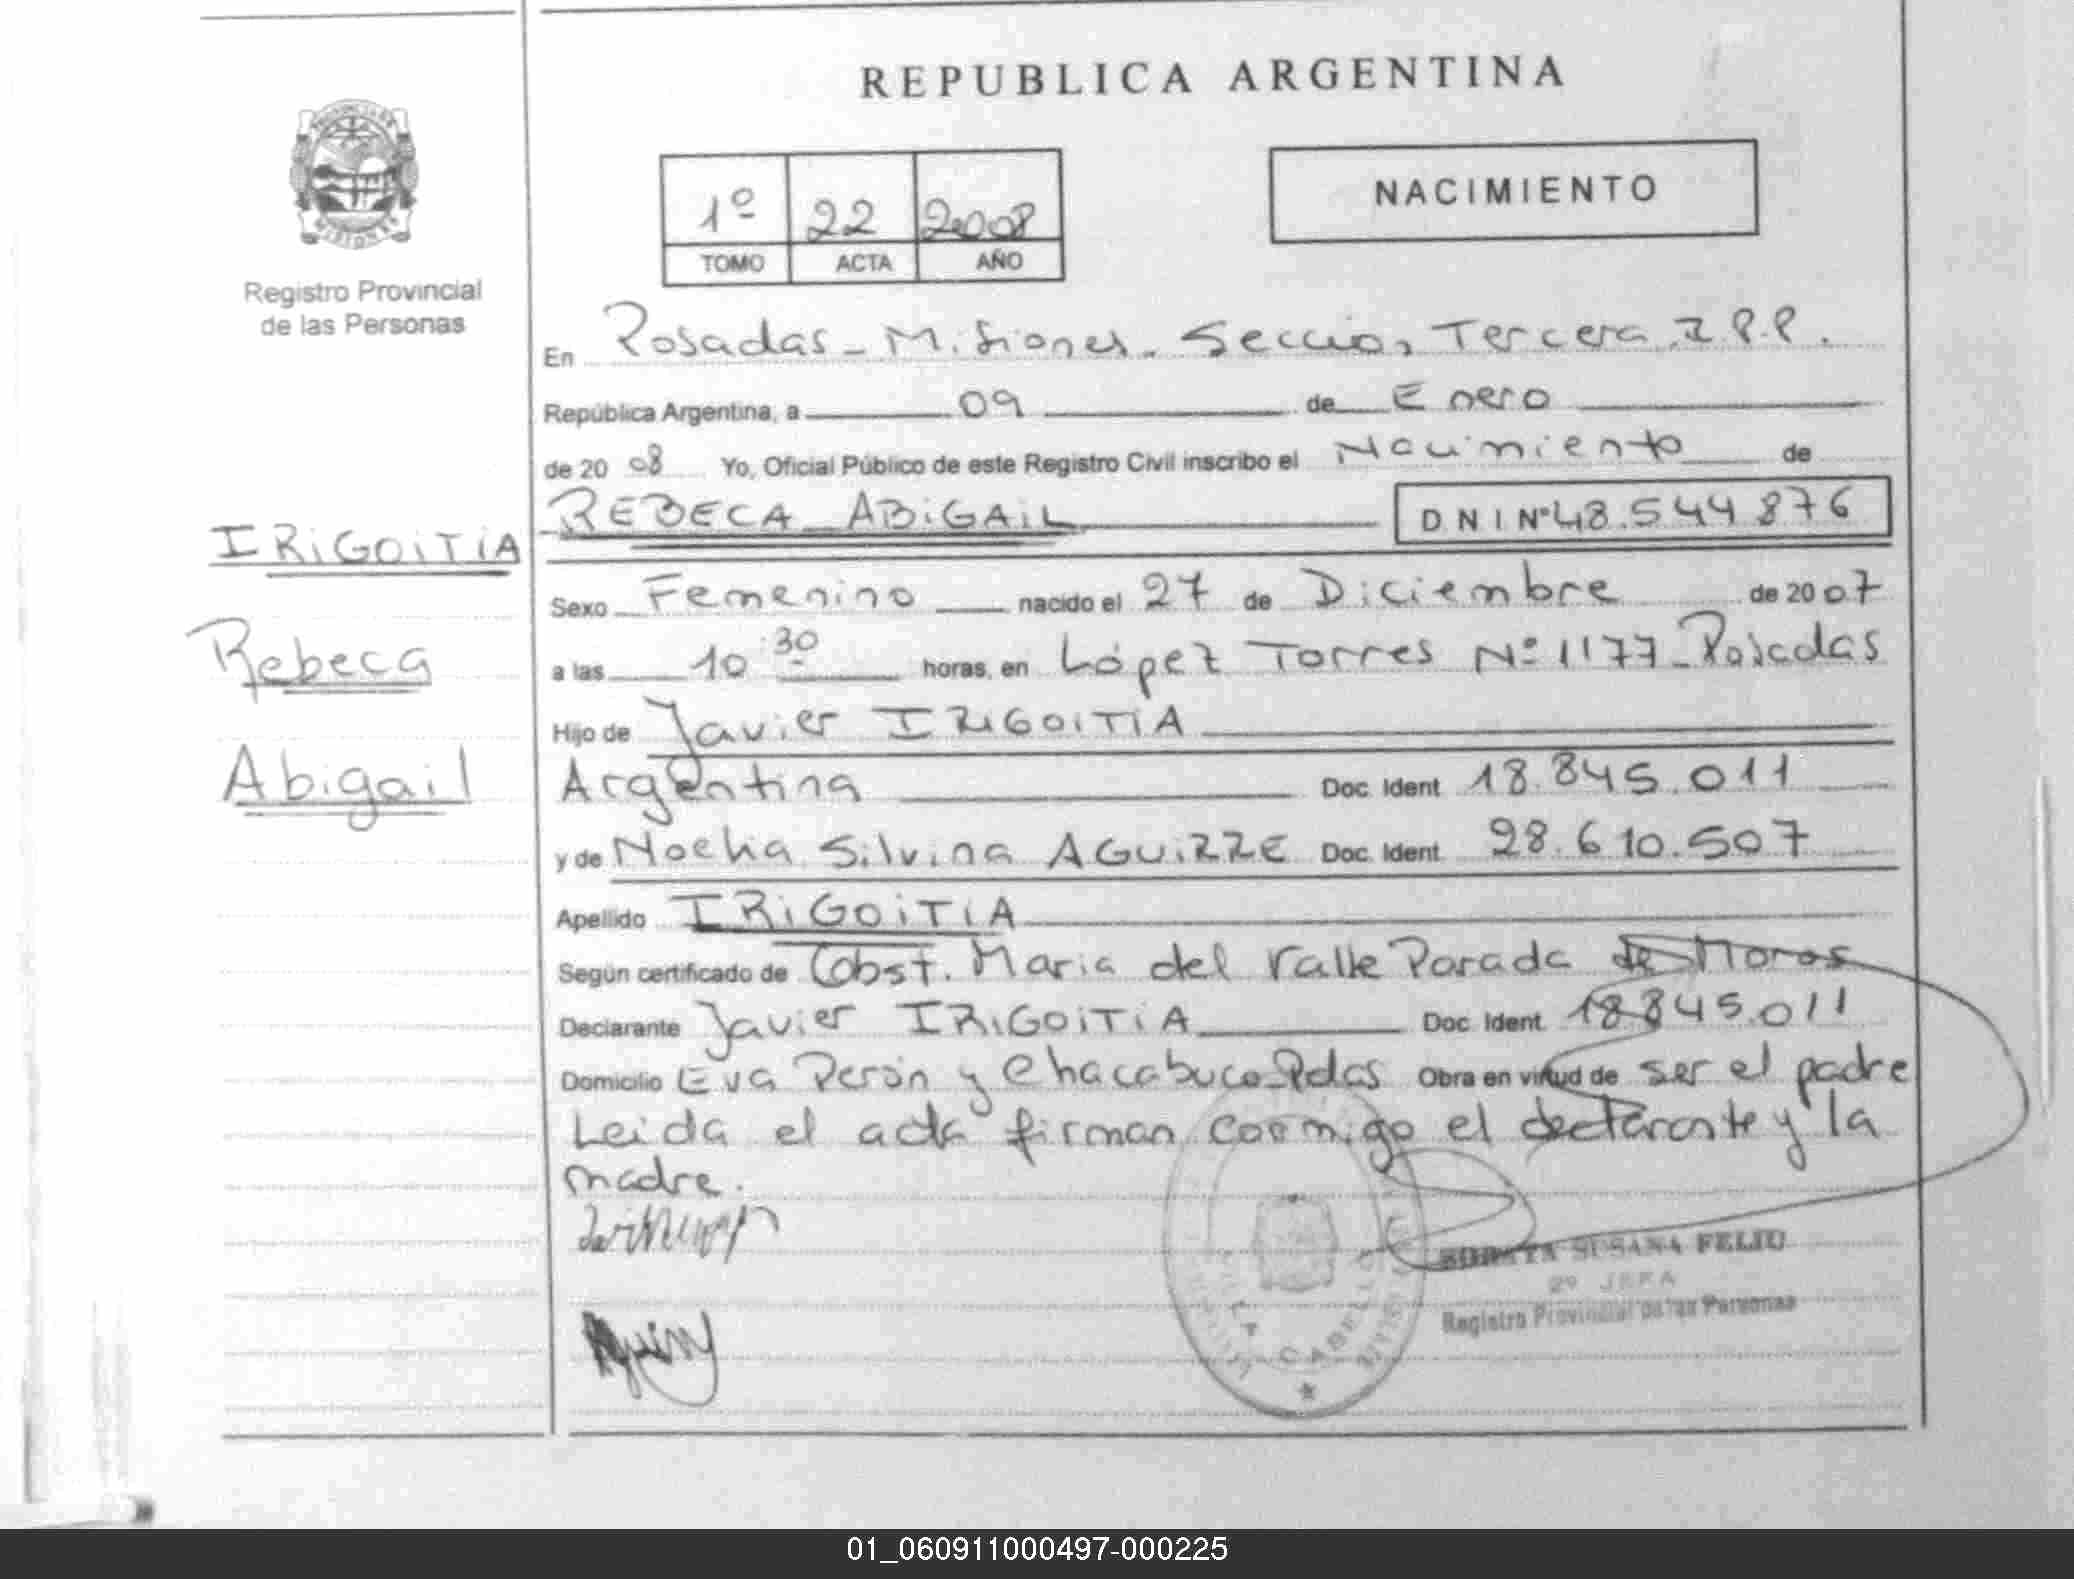 REPUBLICA ARGENTINA
NACIMIENTO
1º 22 2008
TOMO ACTA AÑO
MISIONES
Registro Provincial
de las Personas
En Posadas - Misiones. Seccion Tercera I.P.P.
República Argentina, a 09 de Enero
de 20 08 Yo, Oficial Público de este Registro Civil inscribo el Nacimiento de
REBECA ABIGAIL DNI Nº 48.544876
IRIGOITIA
Rebeca
Abigail
Sexo Femenino nacido el 27 de Diciembre de 20 07
a las 10 30 horas, en López Torres Nº 1177 - Posadas
Hijo de Javier IRIGOITIA
Argentina Doc. Ident 18.845.011
y de Noelia Silvina AGUIRRE Doc. Ident. 28.610.507
Apellido IRIGOITIA
Según certificado de Obst. Maria del Valle Parada de Moros
Declarante Javier IRIGOITIA Doc. Ident. 18845.011
Domicilio Eva Perón y Chacabuco - Pdas Obra en virtud de ser el padre
Leida el acta firman conmigo el declarante y la
madre.
SORAYA SUSANA FELIU
2º JEFA
Registro Provincial de las Personas
01_060911000497-000225